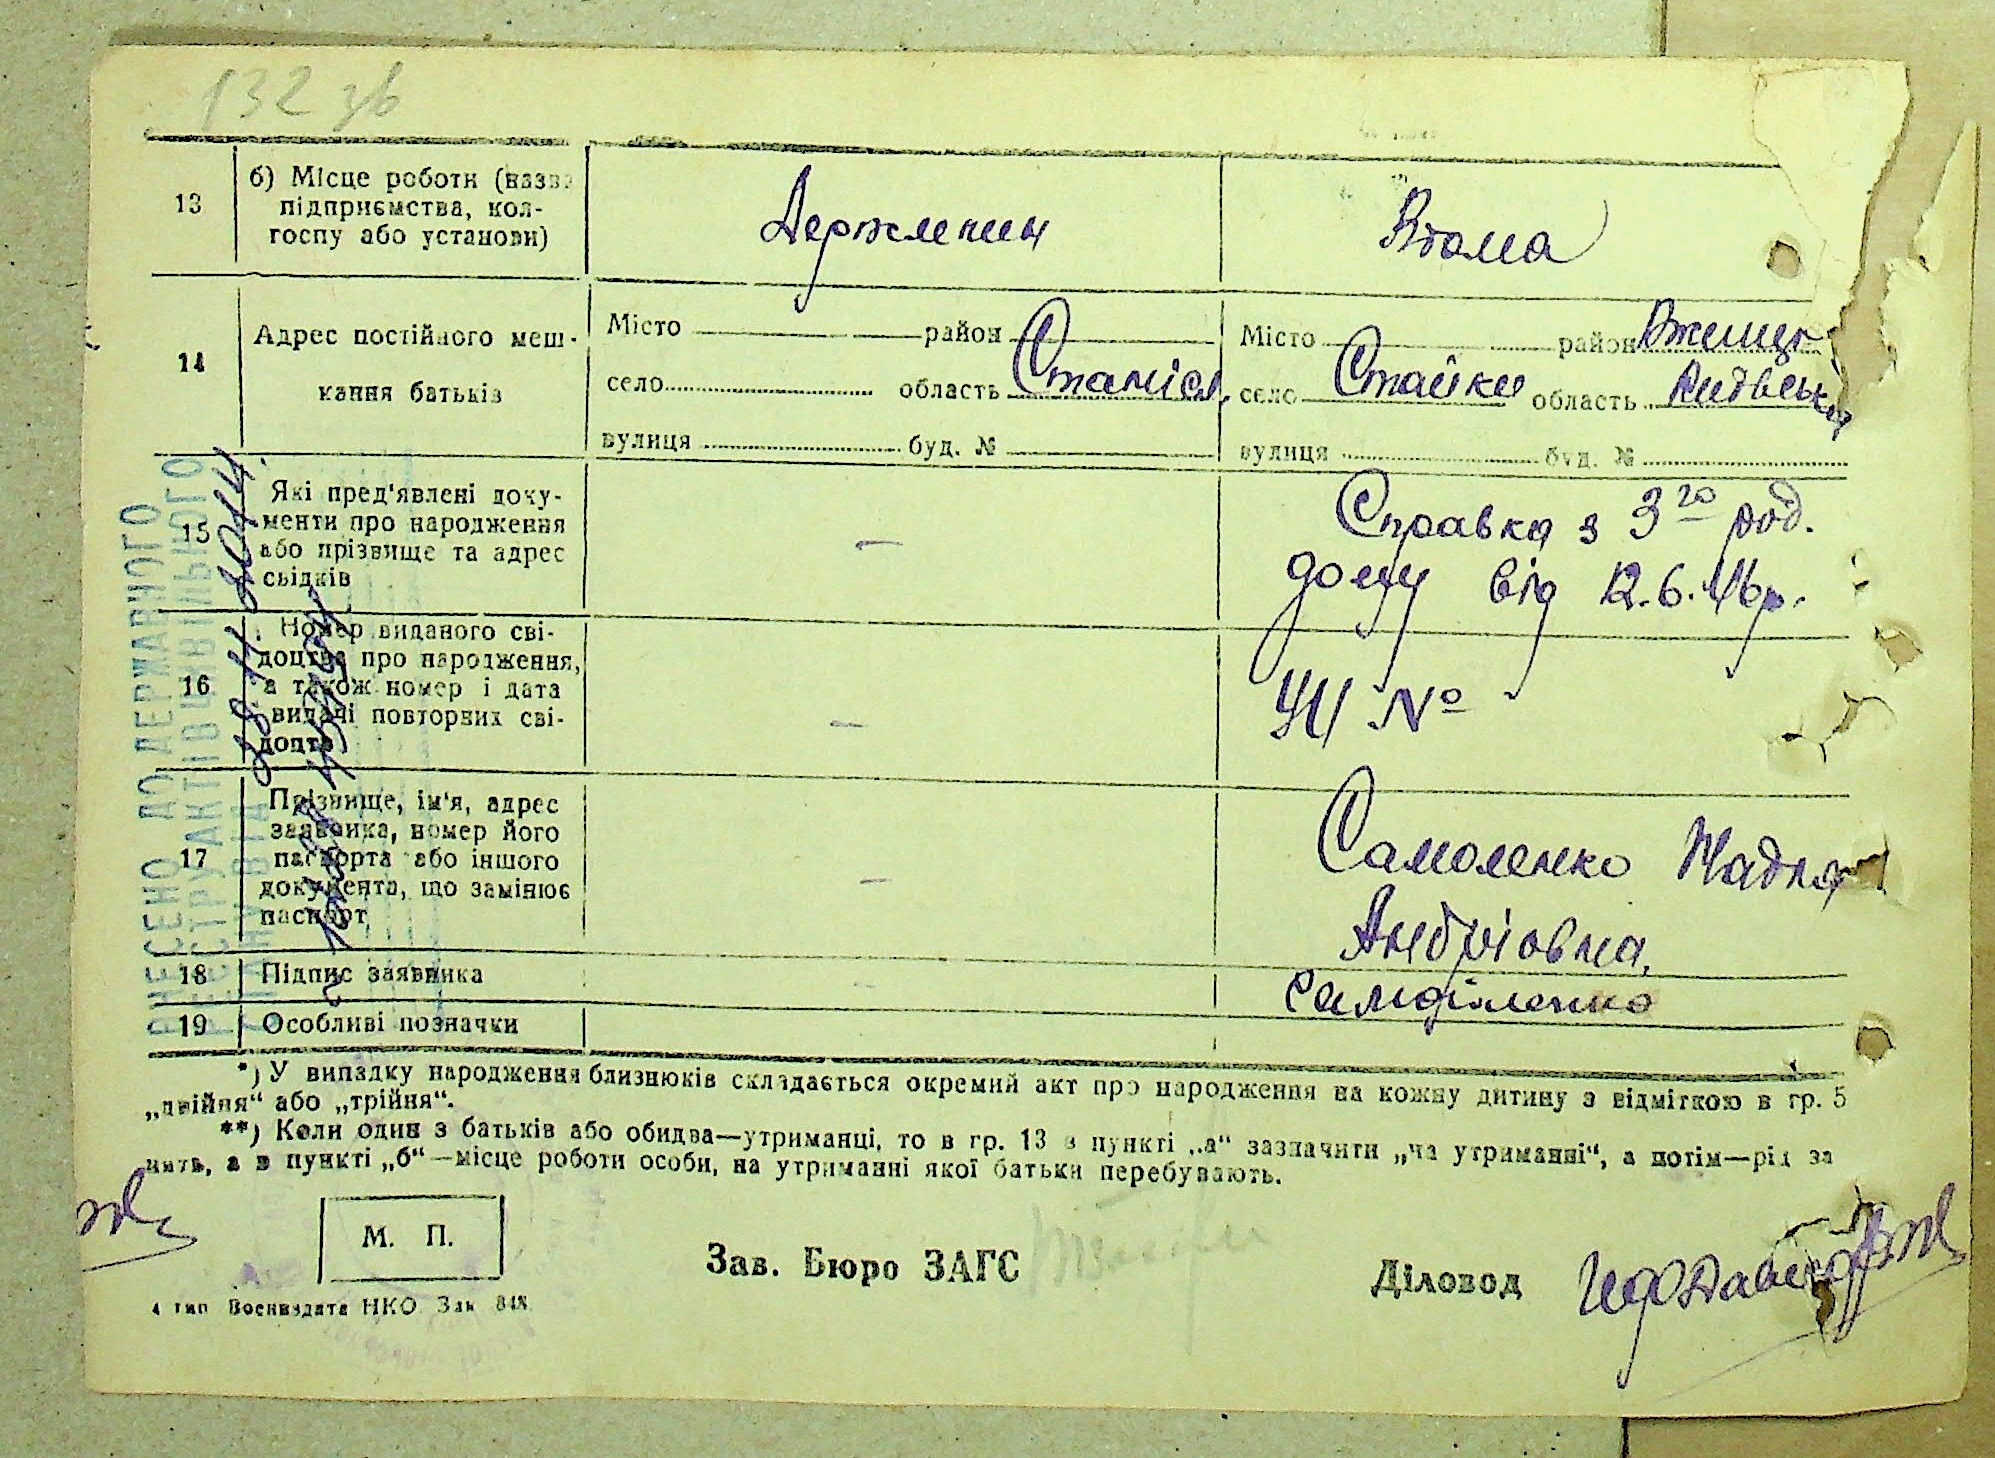 132 зв
13
б) Місце роботи (назва
підприємства, кол-
госпу або установи)
Вдома
14
Адрес постійного меш-
кання батьків
Місто район
село область Станісл.
вулиця буд. №
Місто район Ржищів
село Стайки область Київська
вулиця буд. №
15
Які пред'явлені доку-
менти про народження
або прізвище та адрес
свідків
—
Справка з 3го род.
дому від 12.6.46р.
16
Номер виданого сві-
доцтва про народження,
а також номер і дата
видачі повторних сві-
доцтв
—
УЦ №
17
Прізвище, ім'я, адрес
заявника, номер його
паспорта або іншого
документа, що замінює
паспорт
—
Самоленко Надія
Андріовна.
18
Підпис заявника
19
Особливі позначки
ВНЕСЕНО ДО ДЕРЖАВНОГО
РЕЄСТРУ АКТІВ ЦИВІЛЬНОГО
СТАНУ
*) У випадку народження близнюків складається окремий акт про народження на кожну дитину з відміткою в гр. 5
„двійня“ або „трійня“.
**) Коли один з батьків або обидва—утриманці, то в гр. 13 в пункті „а“ зазначити „на утриманні“, а потім—рід за
нять, а в пункті „б“—місце роботи особи, на утриманні якої батьки перебувають.
М. П.
Зав. Бюро ЗАГС
Діловод
4 тип Воениздата НКО Зак 848